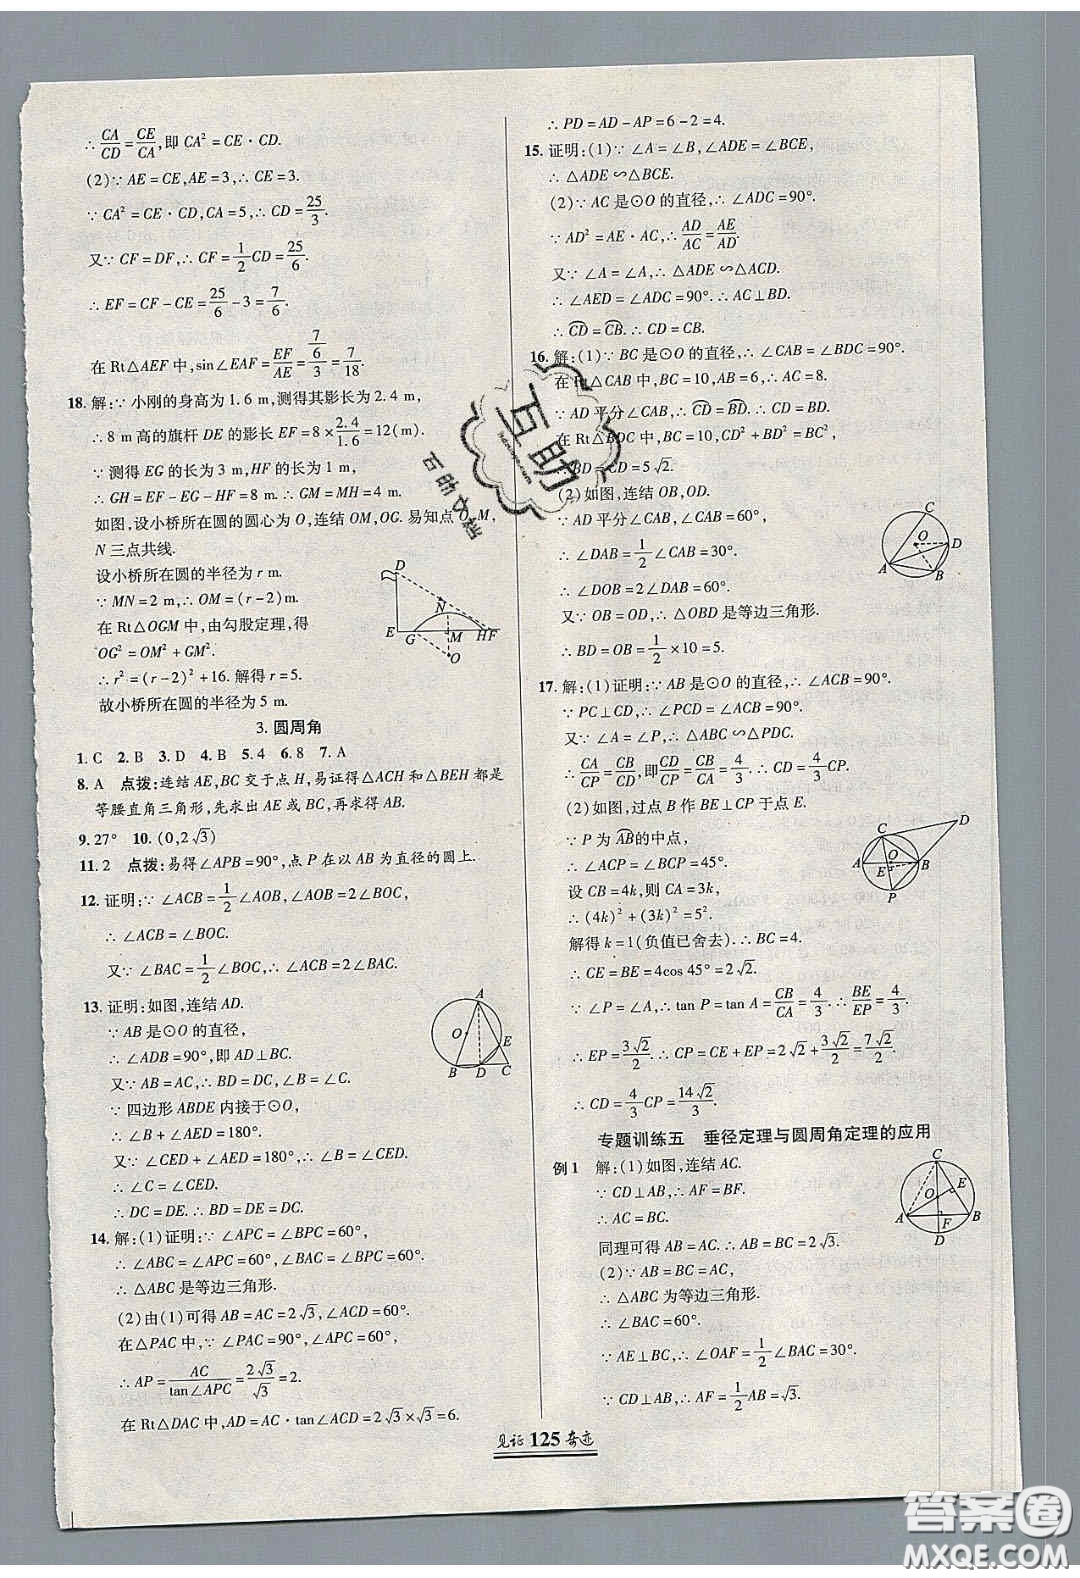 ∴ CA/CD = CE/CA, 即 CA² = CE · CD.
(2)∵ AE = CE, AE = 3, ∴ CE = 3.
∵ CA² = CE · CD, CA = 5, ∴ CD = 25/3.
又∵ CF = DF, ∴ CF = 1/2 CD = 25/6.
∴ EF = CF − CE = 25/6 − 3 = 7/6.
在 Rt△AEF 中, sin∠EAF = EF/AE = (7/6)/3 = 7/18.
18. 解:∵ 小刚的身高为 1.6 m, 测得其影长为 2.4 m,
∴ 8 m 高的旗杆 DE 的影长 EF = 8 × 2.4/1.6 = 12(m).
∵ 测得 EG 的长为 3 m, HF 的长为 1 m,
∴ GH = EF − EG − HF = 8 m. ∴ GM = MH = 4 m.
如图, 设小桥所在圆的圆心为 O, 连结 OM, OG. 易知点 O, M,
N 三点共线.
设小桥所在圆的半径为 r m.
∵ MN = 2 m, ∴ OM = (r − 2) m.
在 Rt△OGM 中, 由勾股定理, 得
OG² = OM² + GM².
∴ r² = (r − 2)² + 16. 解得 r = 5.
故小桥所在圆的半径为 5 m.
D
N
E G M HF
O
3. 圆周角
1. C 2. B 3. D 4. B 5. 4 6. 8 7. A
8. A 点拨:连结 AE, BC 交于点 H, 易证得△ACH 和△BEH 都是
等腰直角三角形, 先求出 AE 或 BC, 再求得 AB.
9. 27° 10. (0, 2√3)
11. 2 点拨:易得∠APB = 90°, 点 P 在以 AB 为直径的圆上.
12. 证明:∵ ∠ACB = 1/2 ∠AOB, ∠AOB = 2∠BOC,
∴ ∠ACB = ∠BOC.
又∵ ∠BAC = 1/2 ∠BOC, ∴ ∠ACB = 2∠BAC.
13. 证明:如图, 连结 AD.
∵ AB 是⊙O 的直径,
∴ ∠ADB = 90°, 即 AD⊥BC.
又∵ AB = AC, ∴ BD = DC, ∠B = ∠C.
∵ 四边形 ABDE 内接于⊙O,
∴ ∠B + ∠AED = 180°.
又∵ ∠CED + ∠AED = 180°,
∴ ∠B = ∠CED.
∴ ∠C = ∠CED.
∴ DC = DE. ∴ BD = DE = DC.
A
O
E
B D C
14. 解:(1)证明:∵ ∠APC = ∠BPC = 60°,
∴ ∠ABC = ∠APC = 60°, ∠BAC = ∠BPC = 60°.
∴ △ABC 是等边三角形.
(2)由(1)可得 AB = AC = 2√3, ∠ACD = 60°.
在△PAC 中, ∵ ∠PAC = 90°, ∠APC = 60°,
∴ AP = AC/tan∠APC = 2√3/√3 = 2.
在 Rt△DAC 中, AD = AC · tan∠ACD = 2√3 × √3 = 6.
∴ PD = AD − AP = 6 − 2 = 4.
15. 证明:(1)∵ ∠A = ∠B, ∠ADE = ∠BCE,
∴ △ADE∽△BCE.
(2)∵ AC 是⊙O 的直径, ∴ ∠ADC = 90°.
∵ AD² = AE · AC, ∴ AD/AC = AE/AD.
又∵ ∠A = ∠A, ∴ △ADE∽△ACD.
∴ ∠AED = ∠ADC = 90°. ∴ AC⊥BD.
∴ CD = CB. ∴ CD = CB.
16. 解:(1)∵ BC 是⊙O 的直径, ∴ ∠CAB = ∠BDC = 90°.
在 Rt△CAB 中, BC = 10, AB = 6, ∴ AC = 8.
∵ AD 平分∠CAB, ∴ CD = BD. ∴ CD = BD.
在 Rt△BDC 中, BC = 10, CD² + BD² = BC²,
∴ BD = CD = 5√2.
(2)如图, 连结 OB, OD.
∵ AD 平分∠CAB, ∠CAB = 60°,
∴ ∠DAB = 1/2 ∠CAB = 30°.
∴ ∠DOB = 2∠DAB = 60°.
又∵ OB = OD, ∴ △OBD 是等边三角形.
∴ BD = OB = 1/2 × 10 = 5.
C
O D
A
B
17. 解:(1)证明:∵ AB 是⊙O 的直径, ∴ ∠ACB = 90°.
∵ PC⊥CD, ∴ ∠PCD = 90°. ∴ ∠ACB = ∠PCD.
又∵ ∠A = ∠P, ∴ △ABC∽△PDC.
∴ CA/CP = CB/CD, 即 CD/CP = CB/CA = 4/3. ∴ CD = 4/3 CP.
(2)如图, 过点 B 作 BE⊥CP 于点 E.
∵ P 为 AB 的中点,
∴ ∠ACP = ∠BCP = 45°.
设 CB = 4k, 则 CA = 3k,
∴ (4k)² + (3k)² = 5².
解得 k = 1(负值已舍去). ∴ BC = 4.
∴ CE = BE = 4cos 45° = 2√2.
∵ ∠P = ∠A, ∴ tan P = tan A = CB/CA = 4/3. ∴ BE/EP = 4/3.
∴ EP = 3√2/2. ∴ CP = CE + EP = 2√2 + 3√2/2 = 7√2/2.
∴ CD = 4/3 CP = 14√2/3.
C D
A O B
E
P
专题训练五 垂径定理与圆周角定理的应用
例 1 解:(1)如图, 连结 AC.
∵ CD⊥AB, ∴ AF = BF.
∴ AC = BC.
同理可得 AB = AC. ∴ AB = BC.
(2)∵ AB = BC = AC,
∴ △ABC 为等边三角形.
∴ ∠BAC = 60°.
∵ AE⊥BC, ∴ ∠OAF = 1/2 ∠BAC = 30°.
∵ CD⊥AB, ∴ AF = 1/2 AB = √3.
C
E
O
A F B
D
见证 125 奇迹
互助
百助文档
答案圈
MXQE.COM